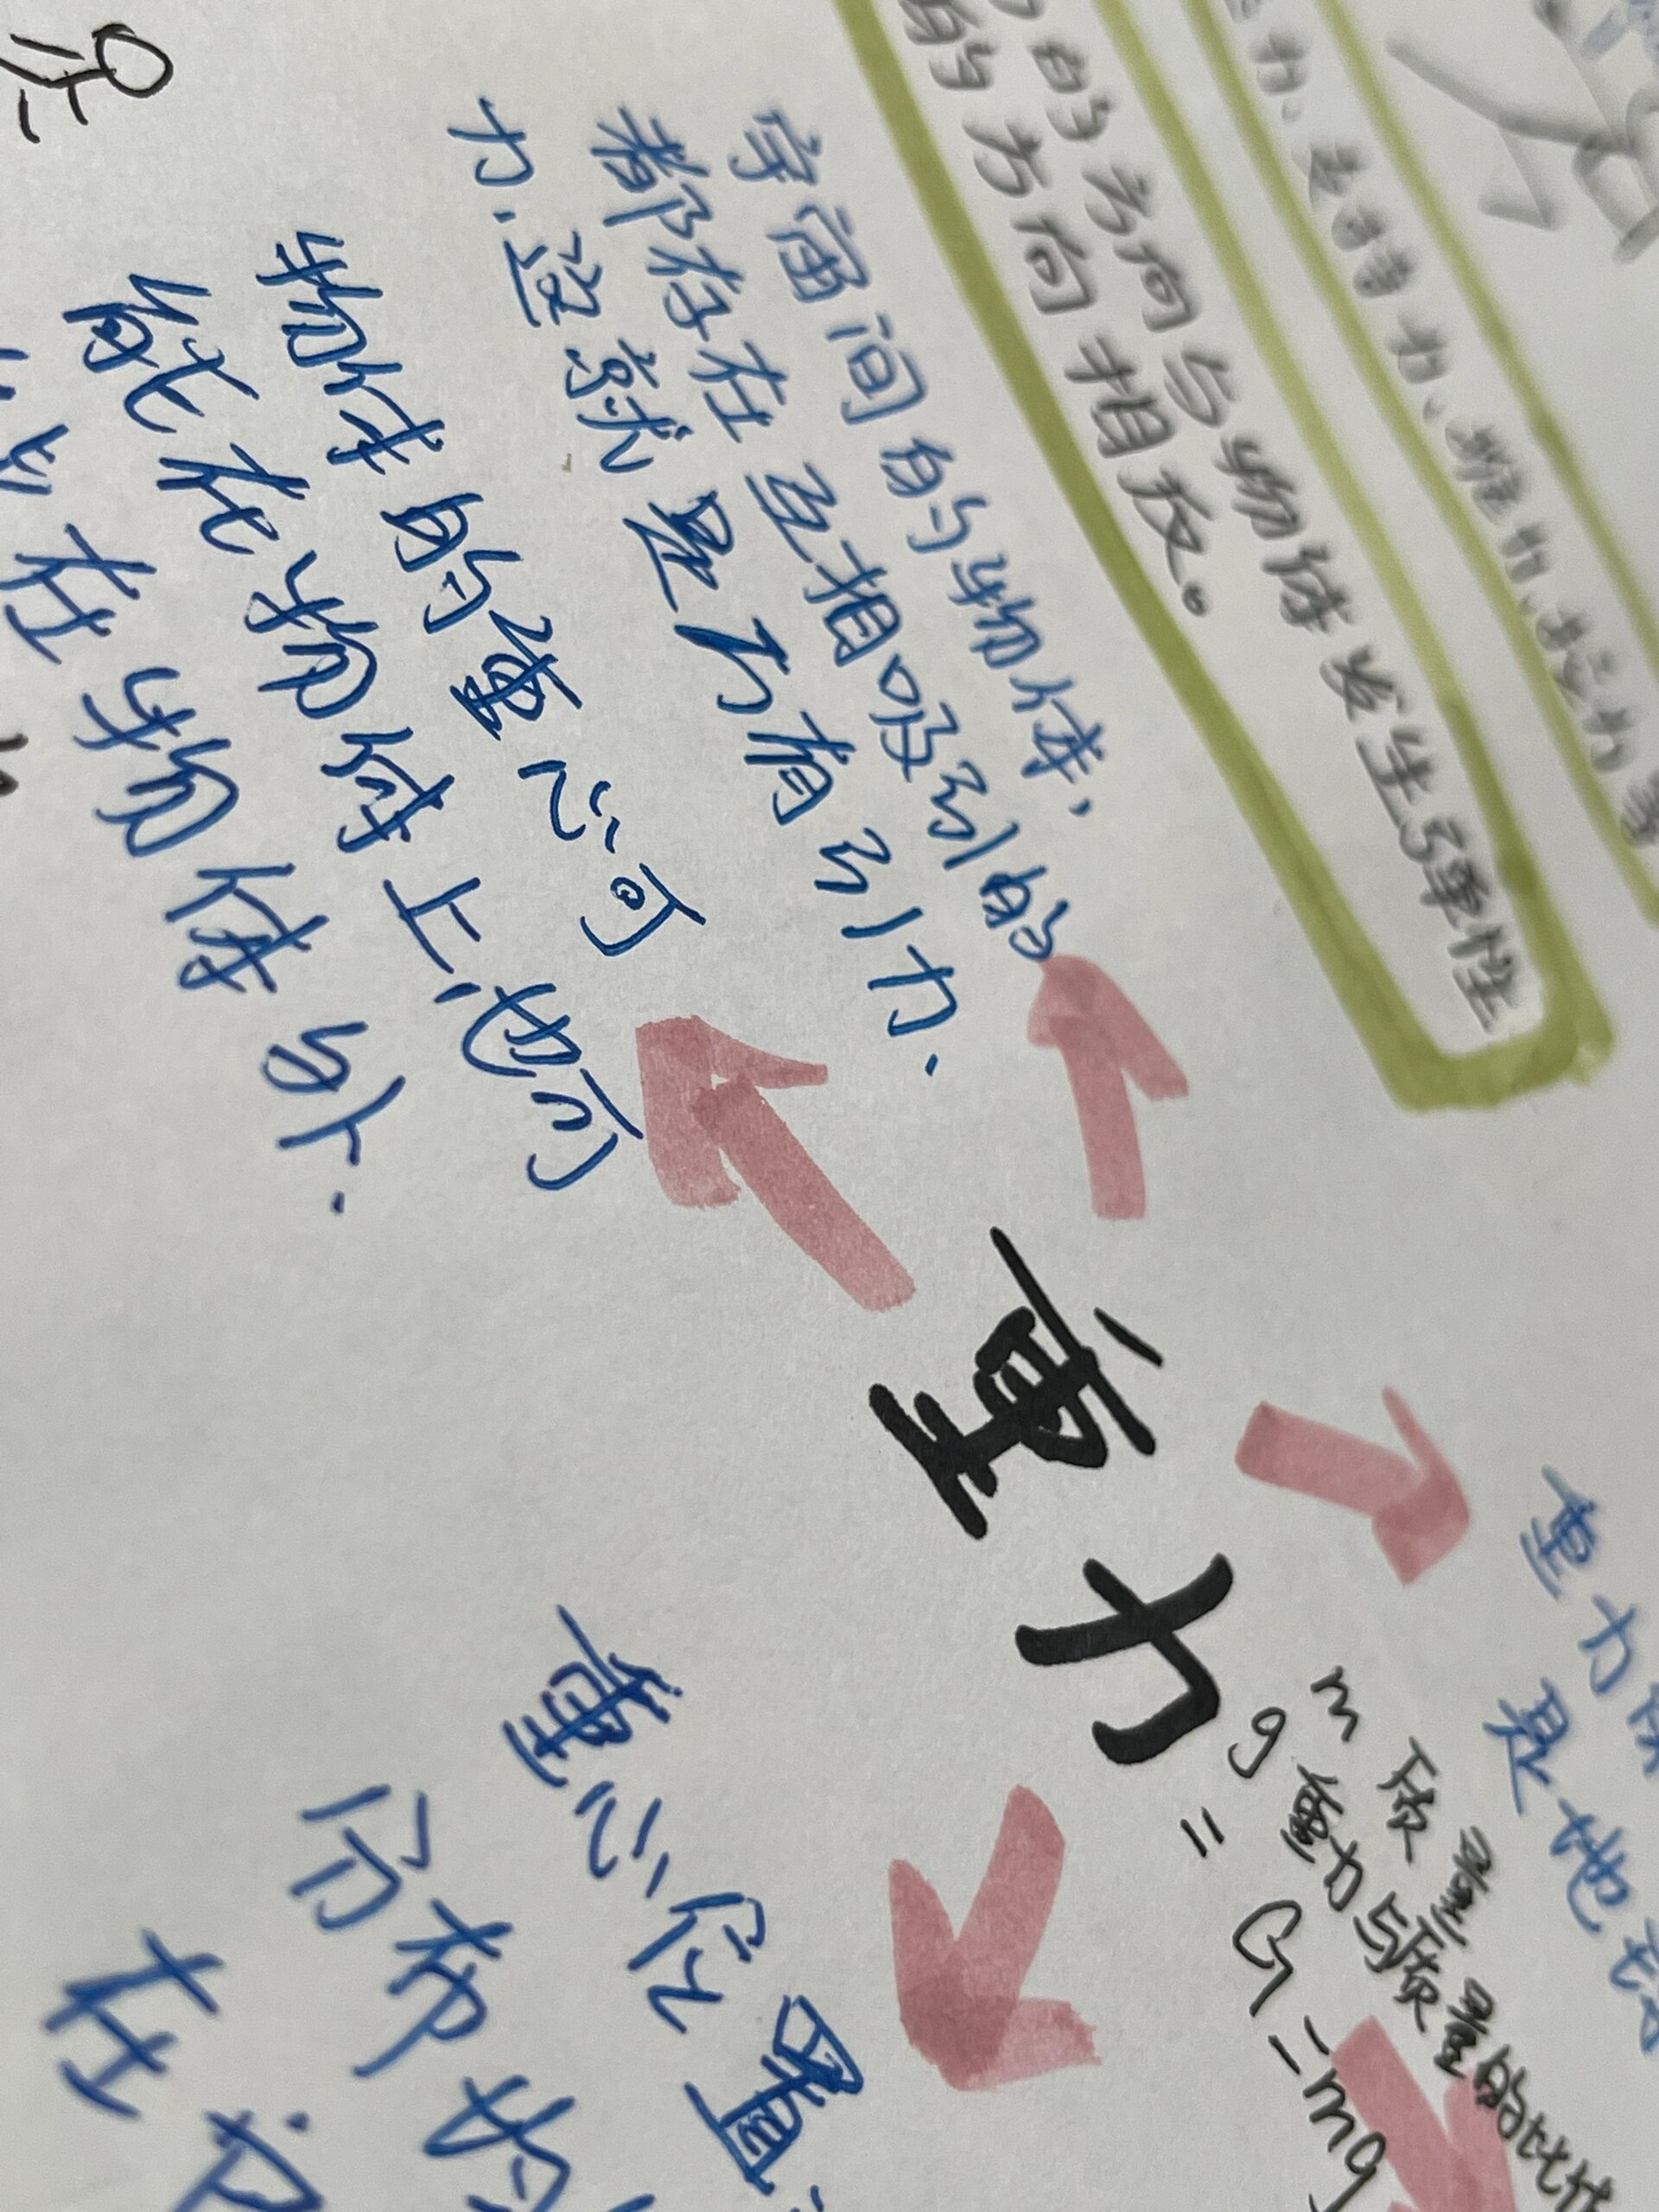 力、支持力、推力、拉力等
的方向与物体发生弹性
的方向相反。
宇宙间的物体,
都存在互相吸引的
力.这就是万有引力.
物体的重心可
能在物体上也可
在物体外.
重力
重力
是地球
m 质量
g 重力与质量的比
= G=mg
重心位置
分布
在